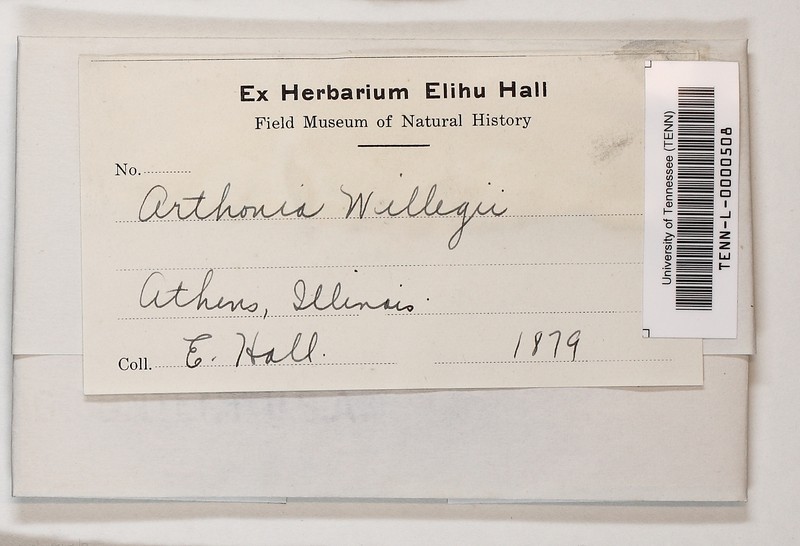 Ex Herbarium Elihu Hall
Field Museum of Natural History
No.
Arthonia Willegii
Athens, Illinois.
Coll. E. Hall. 1879
University of Tennessee (TENN)
TENN-L-0000508